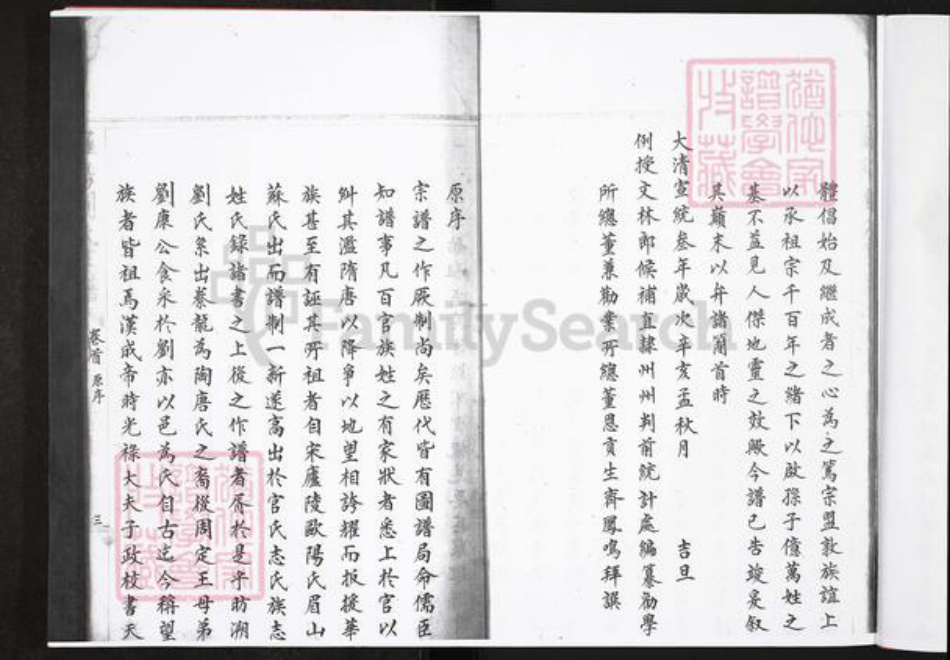 體倡始及繼成者之心為之篤宗盟敦族誼上
以承祖宗千百年之緒下以啟孫子億萬姓之
基不益見人傑地靈之效歟今譜已告竣爰叙
其巔末以弁諸簡首時
大清宣統叁年歲次辛亥孟秋月 吉旦
例授文林郎候補直隸州州判前統計處編纂勸學
所總董兼勸業所總董恩貢生齊鳳鳴拜譔
猶他家譜學會收藏
原序
宗譜之作厥制尚矣歷代皆有圖譜局命儒臣
知譜事凡百官族姓之有家狀者悉上於官以
糾其濫隋唐以降爭以地望相誇耀而扳援華
族甚至有誣其所祖者自宋廬陵歐陽氏眉山
蘇氏出而譜制一新遂高出於官氏志氏族志
姓氏錄諸書之上後之作譜者胥於是乎昉溯
劉氏系出蔡龍為陶唐氏之裔後周定王母弟
劉康公食采於劉亦以邑為氏自古迄今稱望
族者皆祖焉漢成帝時光祿大夫子政校書天
卷首 原序
三
猶他家譜學會收藏
FamilySearch